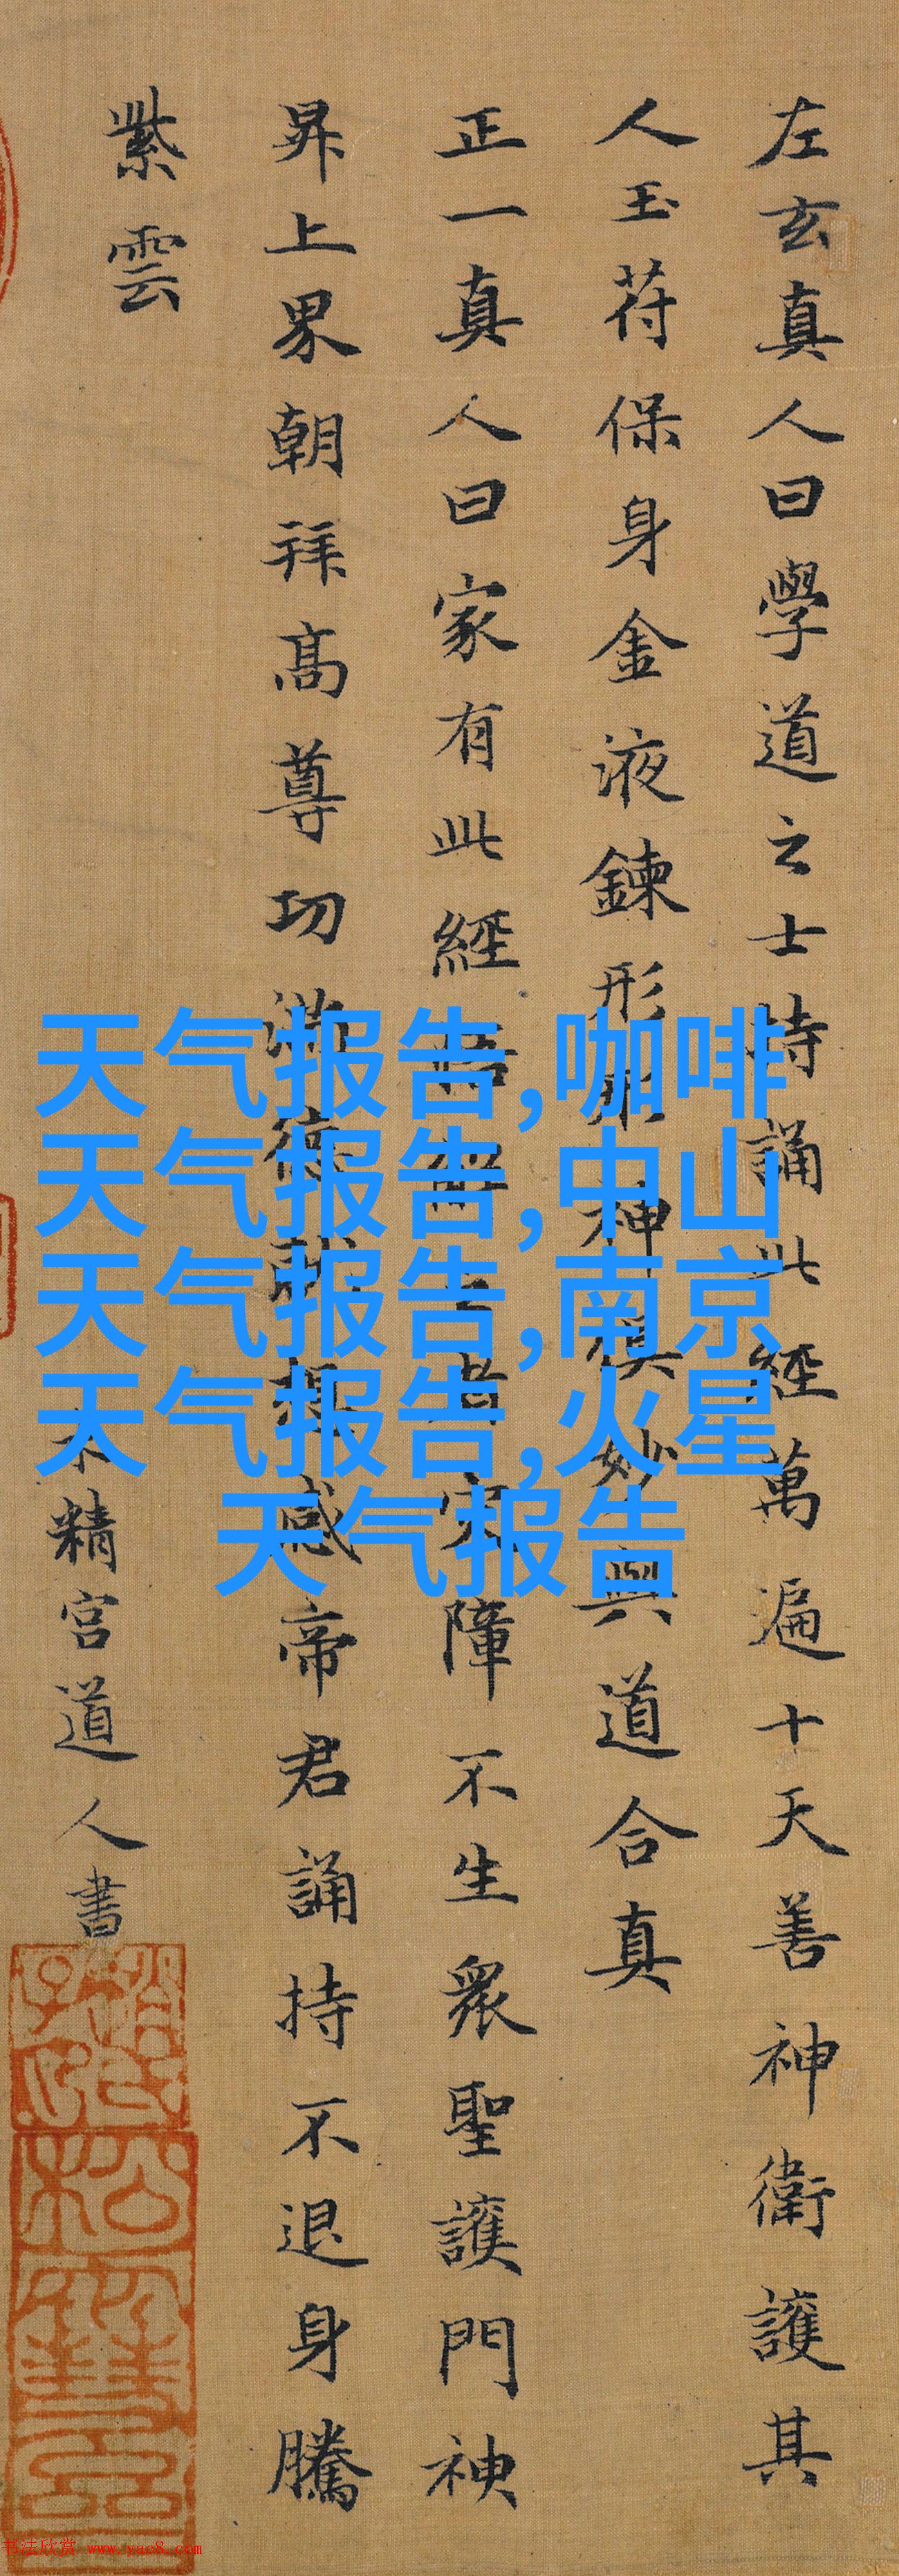 左玄真人曰學道之士持誦此經萬遍十天善神衛護其
人玉苻保身金液鍊形形神俱妙與道合真
正一真人曰家有此經悟解之者灾障不生衆聖護門神
昇上界朝拜高尊功滿德就相感帝君誦持不退身騰
紫雲
水精宮道人書
天气报告,咖啡
天气报告,中山
天气报告,南京
天气报告,火星
天气报告
书法欣赏 www.yac8.com